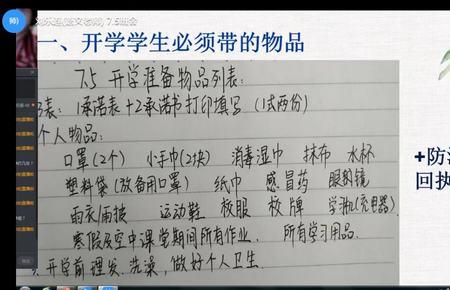 7.5班会
一、开学学生必须带的物品
7.5 开学准备物品列表:
表: 1承诺表+2承诺书打印填写 (1式两份)
个人物品:
口罩(2个) 小手巾(2块) 消毒湿巾 抹布 水杯
塑料袋(放备用口罩) 纸巾 感冒药 眼镜
雨衣/雨披 运动鞋 校服 校牌
寒假及空中课堂期间所有作业. 所有学习用品.
开学前理发.洗澡,做好个人卫生.
+防
回执